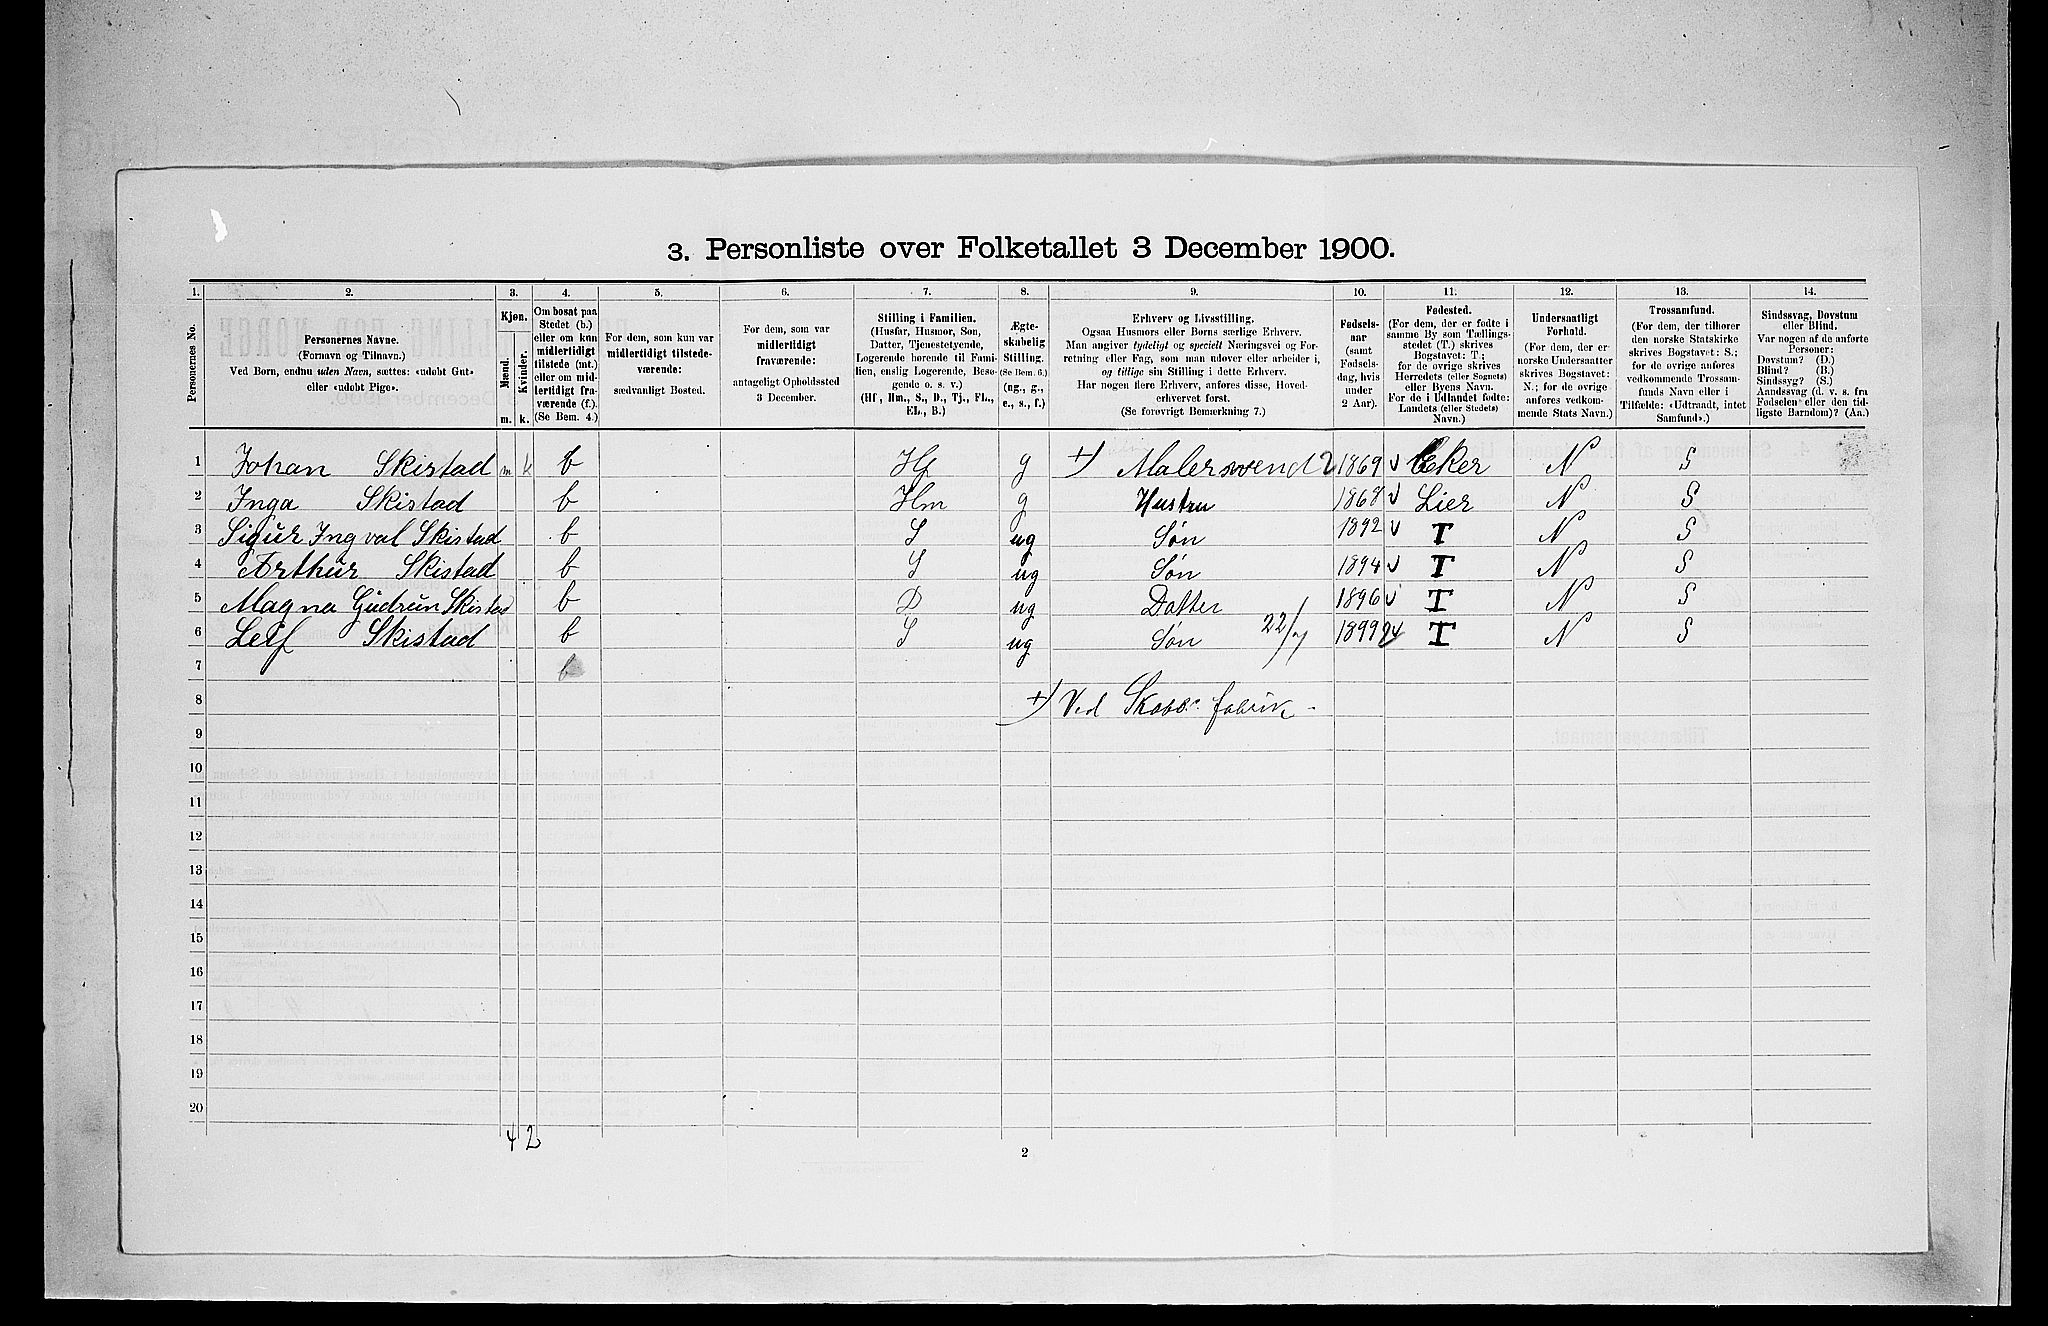 3. Personliste over Folketallet 3 December 1900.
1. 2. 3. 4. 5. 6. 7. 8. 9. 10. 11. 12. 13. 14.
Personernes No.
Personernes Navne.
(Fornavn og Tilnavn.)
Ved Børn, endnu uden Navn, sættes: «udøbt Gut»
eller «udøbt Pige».
Kjøn.
Mænd.
Kvinder.
m. k.
Om bosat paa
Stedet (b.)
eller om kun
midlertidigt
tilstede (mt.)
eller om mid-
lertidigt fra-
værende (f.).
(Se Bem. 4.)
For dem, som kun var
midlertidigt tilstede-
værende:
sædvanligt Bosted.
For dem, som var
midlertidigt
fraværende:
antageligt Opholdssted
3 December.
Stilling i Familien.
(Husfar, Husmor, Søn,
Datter, Tjenestetyende,
Logerende hørende til Fami-
lien, enslig Logerende, Besø-
gende o. s. v.)
(Hf, Hm., S., D., Tj., FL.,
EL., B.)
Ægte-
skabelig
Stilling.
(Se Bem. 6.)
(ug., g.,
e., s., f.)
Erhverv og Livsstilling.
Ogsaa Husmors eller Børns særlige Erhverv.
Man angiver tydeligt og specielt Næringsvei og For-
retning eller Fag, som man udøver eller arbeider i,
og tillige sin Stilling i dette Erhverv.
Har nogen flere Erhverv, anføres disse, Hoved-
erhvervet først.
(Se forøvrigt Bemærkning 7.)
Fødsels-
aar
(samt
Fødsels-
dag, hvis
under
2 Aar).
Fødested.
(For dem, der er fødte i
samme By som Tællings-
stedet (T.) skrives
Bogstavet: T;
for de øvrige skrives
Herredets (eller Sognets)
eller Byens Navn.
For de i Udlandet fødte:
Landets (eller Stedets)
Navn.)
Undersaatligt
Forhold.
(For dem, der er
norske Undersaatter
skrives Bogstavet:
N.; for de øvrige
anføres vedkom-
mende Stats Navn.)
Trossamfund.
(For dem, der tilhører
den norske Statskirke
skrives Bogstavet: S.;
for de øvrige anføres
vedkommende Trossam-
funds Navn eller i
Tilfælde: «Udtraadt, intet
Samfund».)
Sindssvag, Døvstum
eller Blind.
Var nogen af de anførte
Personer:
Døvstum? (D.)
Blind? (B.)
Sindssyg? (S.)
Aandssvag (d. v. s. fra
Fødselen eller den tid-
ligste Barndom)? (Aa.)
1 Johan Skistad m k b Hf g +) Malersvend 2 1869 v Eker N S
2 Inga Skistad b Hm g Hustru 1868 v Lier N S
3 Sigur Ingval Skistad b S ug Søn 1892 v T N S
4 Arthur Skistad b S ug Søn 1894 v T N S
5 Magna Gudrun Skistad b D ug Datter 1896 v T N S
6 Leif Skistad b S ug Søn 22/7 1899 T N S
7 b
8 +) Ved Skabo fabrik -
9
10
11
12
13
14
15
16
17
18
19
20
4 2
2